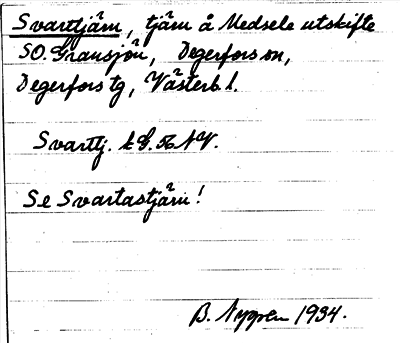 Svarttjärn, tjärn å Vedsele utskifte
SO. Gransjön, Degerfors sn,
Degerfors tg, Västerb. l.
Svarttj. kG. 56 NV.
Se Svartastjärn!
B. Nygren 1934.